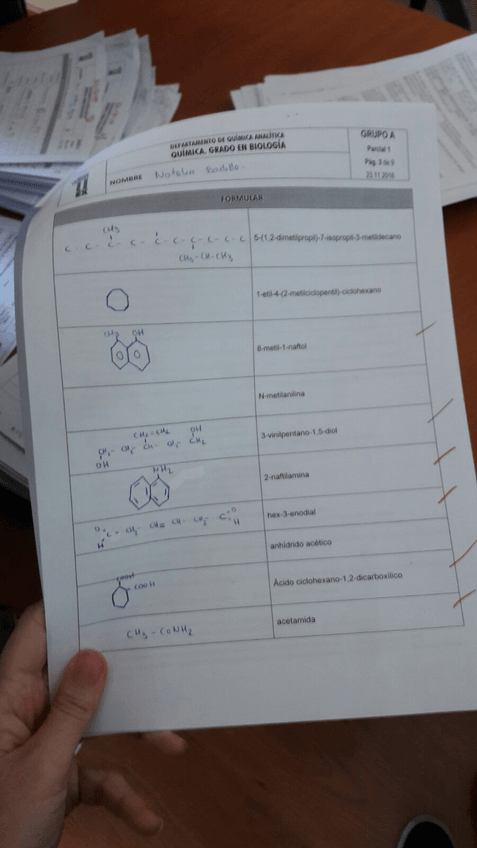 DEPARTAMENTO DE QUÍMICA ANALÍTICA
QUÍMICA. GRADO EN BIOLOGÍA
NOMBRE Natalia
GRUPO A
Parcial 1
Pág. 3 de 9
22.11.2016
FORMULAR
CH3
C - C - C - C - C - C - C - C - C - C
CH3 - CH - CH3
5-(1,2-dimetilpropil)-7-isopropil-3-metildecano
1-etil-4-(2-metilciclopentil)-ciclohexano
CH3 OH
8-metil-1-naftol
N-metilanilina
OH
CH2 CH2 CH CH2 CH2
OH
3-vinilpentano-1,5-diol
NH2
2-naftilamina
O C - CH2 CH = CH CH2 C O
H H
hex-3-enodial
anhídrido acético
COOH
COOH
Ácido ciclohexano-1,2-dicarboxílico
CH3 - CONH2
acetamida